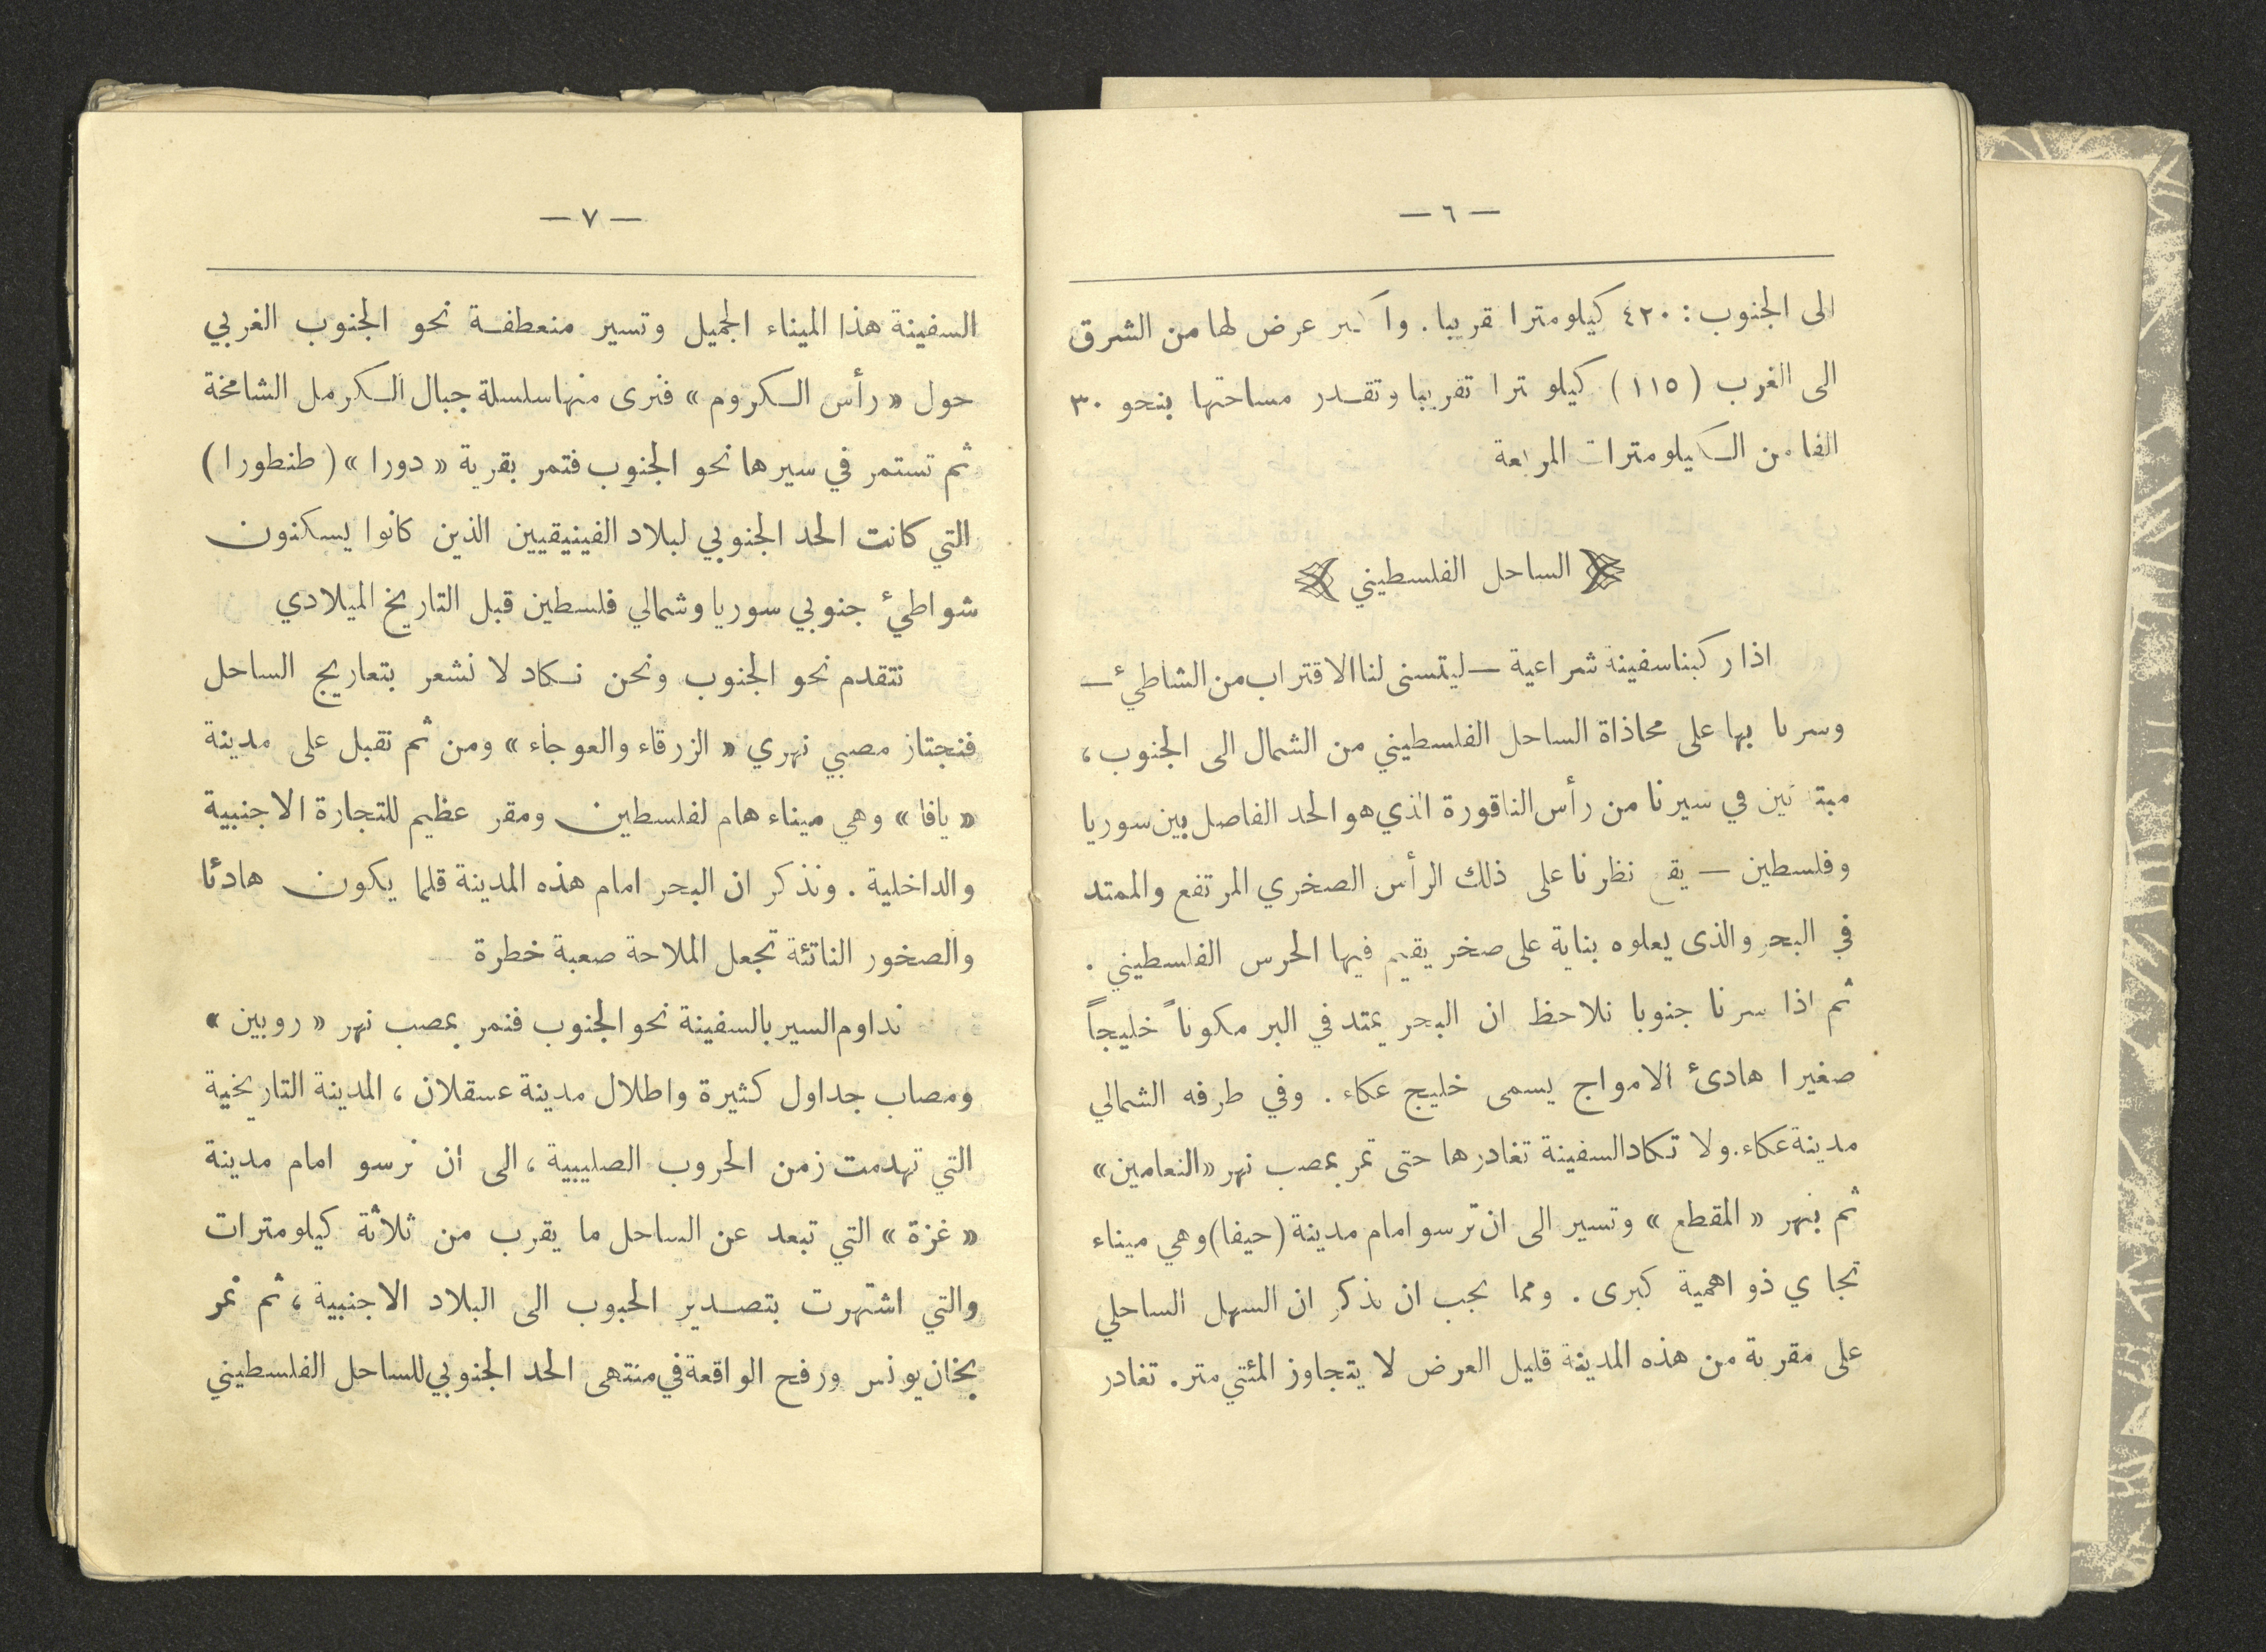 — ٦ —
الى الجنوب : ٤٢٠ كيلومترا تقريبا . واكبر عرض لها من الشرق
الى الغرب ( ١١٥ ) كيلومترا تقريبا وتقدر مساحتها بنحو ٣٠
الفا من الكيلومترات المربعة
الساحل الفلسطيني
اذا ركبنا سفينة شراعية — ليتسنى لنا الاقتراب من الشاطيٴ —
وسرنا بها على محاذاة الساحل الفلسطيني من الشمال الى الجنوب ،
مبتدئين في سيرنا من رأس الناقورة الذي هو الحد الفاصل بين سوريا
وفلسطين — يقع نظرنا على ذلك الرأس الصخري المرتفع والممتد
في البحر والذى يعلوه بناية على صخر يقيم فيها الحرس الفلسطيني .
ثم اذا سرنا جنوبا نلاحظ ان البحر يمتد في البر مكوناً خليجاً
صغيرا هادئ الامواج يسمى خليج عكاء . وفي طرفه الشمالي
مدينة عكاء . ولا تكاد السفينة تغادرها حتى تمر بمصب نهر « النعامين »
ثم بنهر « المقطع » وتسير الى ان ترسو امام مدينة ( حيفا ) وهي ميناء
تجاري ذو اهمية كبرى . ومما يجب ان يذكر ان السهل الساحلي
على مقربة من هذه المدينة قليل العرض لا يتجاوز المئتي متر . تغادر
— ٧ —
السفينة هذا الميناء الجميل وتسير منعطفة نحو الجنوب الغربي
حول « رأس الكروم » فنرى منها سلسلة جبال الكرمل الشامخة
ثم تستمر في سيرها نحو الجنوب فتمر بقرية « دورا » ( طنطورا )
التي كانت الحد الجنوبي لبلاد الفينيقيين الذين كانوا يسكنون
شواطيٴ جنوبي سوريا وشمالي فلسطين قبل التاريخ الميلادي
نتقدم نحو الجنوب ونحن نكاد لا نشعر بتعاريج الساحل
فنجتاز مصبي نهري « الزرقاء والعوجاء » ومن ثم نقبل على مدينة
« يافا » وهي ميناء هام لفلسطين ومقر عظيم للتجارة الاجنبية
والداخلية . ونذكر ان البحر امام هذه المدينة قلما يكون هادئا
والصخور الناتئة تجعل الملاحة صعبة خطرة
نداوم السير بالسفينة نحو الجنوب فنمر بمصب نهر « روبين »
ومصاب جداول كثيرة واطلال مدينة عسقلان ، المدينة التاريخية
التي تهدمت زمن الحروب الصليبية ، الى ان نرسو امام مدينة
« غزة » التي تبعد عن الساحل ما يقرب من ثلاثة كيلومترات
والتي اشتهرت بتصدير الحبوب الى البلاد الاجنبية ، ثم نمر
بخان يونس ورفح الواقعة في منتهى الحد الجنوبي للساحل الفلسطيني